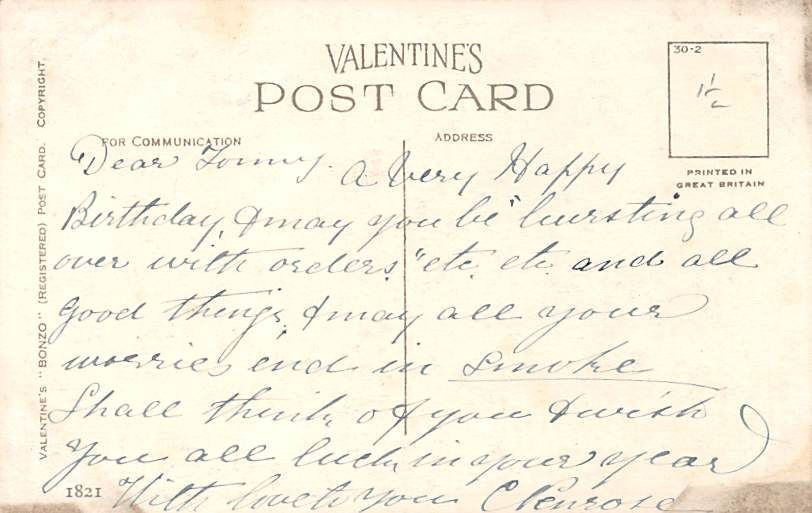 VALENTINE'S
POST CARD
30-2
1/2
PRINTED IN
GREAT BRITAIN
FOR COMMUNICATION
ADDRESS
VALENTINE'S "BONZO" (REGISTERED) POST CARD. COPYRIGHT.
Dear Tommy. A Very Happy
Birthday, & may you be "bursting all
over with orders" etc. etc. and all
good things, & may all your
worries end in smoke
Shall think of you & wish
you all luck in your year
With love to you C Penrose
1821